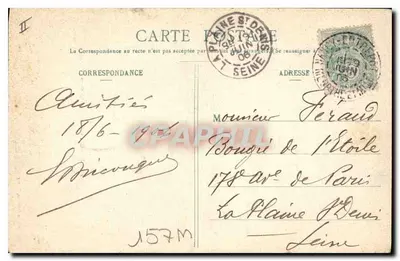 II
CARTE POSTALE
La Correspondance au recto n'est pas acceptée
CORRESPONDANCE
ADRESSE
LA PLAINE ST DENIS
JUIN
06
SEINE
Amitiés
18/6-1906
Monsieur Feraud
Bougie de l'Etoile
178 Ave de Paris
La Plaine St Denis
Seine
157M